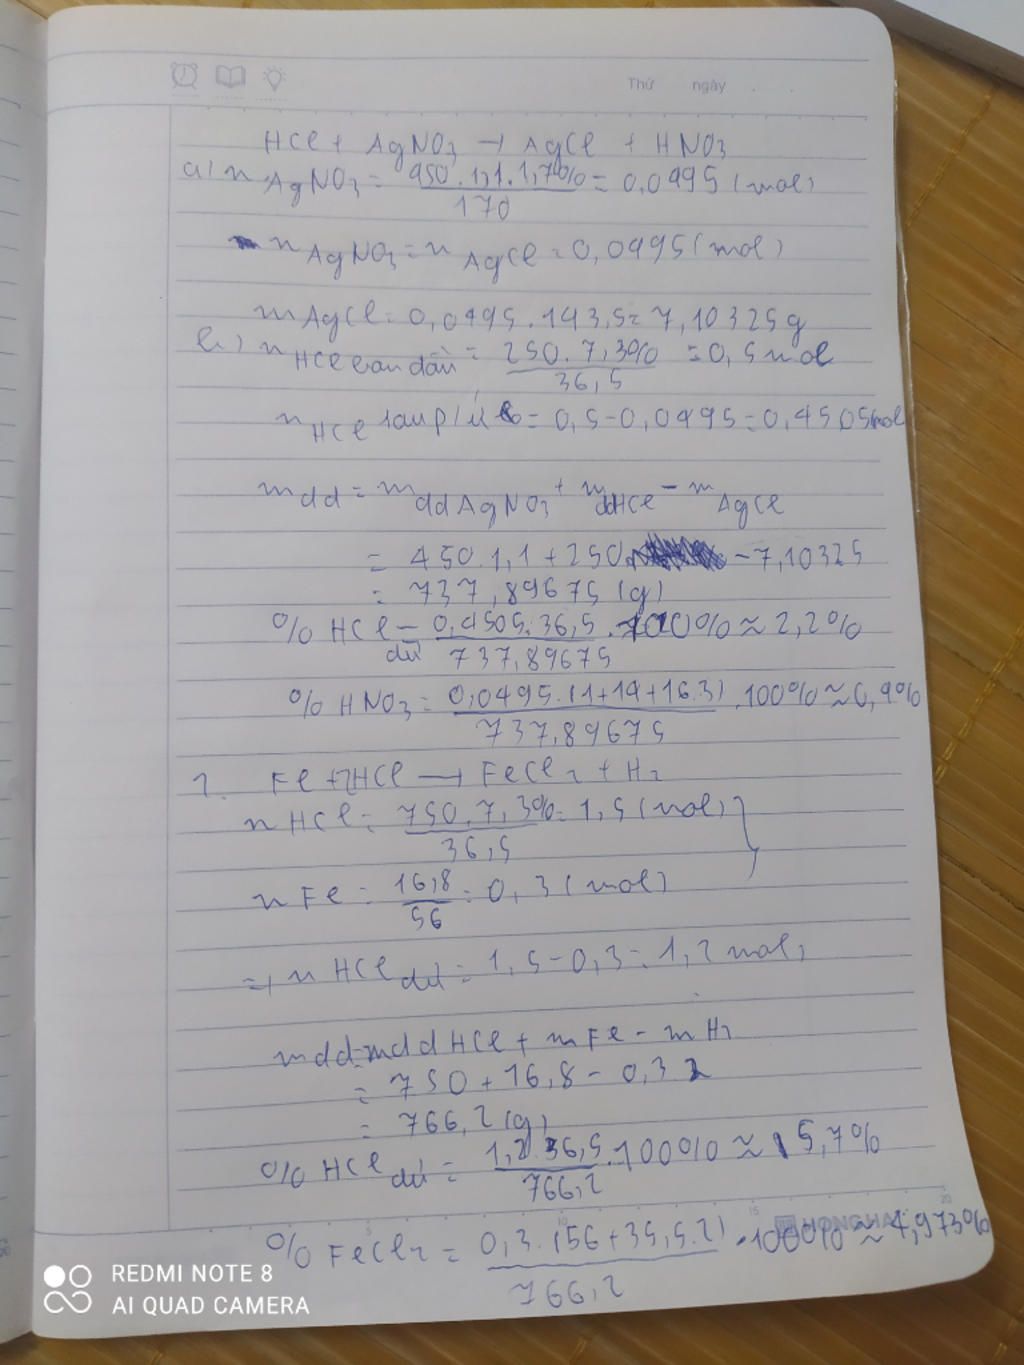 Thứ ngày
HCl + AgNO3 → AgCl + HNO3
a/ n AgNO3 = 450.1,1.1,7% / 170 = 0,0495 (mol)
n AgNO3 = n AgCl = 0,0495 (mol)
m AgCl = 0,0495.143,5 = 7,10325g
b) n HCl ban đầu = 250.7,3% / 36,5 = 0,5 mol
n HCl sau p/ứ = 0,5 - 0,0495 = 0,4505 mol
m dd = m dd AgNO3 + m dd HCl - m AgCl
= 450.1,1 + 250 - 7,10325
= 737,89675 (g)
% HCl dư = 0,4505.36,5 / 737,89675 .100% ≈ 2,2%
% HNO3 = 0,0495.(1+14+16.3) / 737,89675 .100% ≈ 0,4%
1. Fe + 2HCl → FeCl2 + H2
n HCl = 750.7,3% / 36,5 = 1,5 (mol)
n Fe = 16,8 / 56 = 0,3 (mol)
=> n HCl dư = 1,5 - 0,3 = 1,2 mol
m dd = m dd HCl + m Fe - m H2
= 750 + 16,8 - 0,3.2
= 766,2 (g)
% HCl dư = 1,2.36,5 / 766,2 .100% ≈ 5,7%
% FeCl2 = 0,3.(56+35,5.2) / 766,2 .100% ≈ 4,973%
REDMI NOTE 8
AI QUAD CAMERA